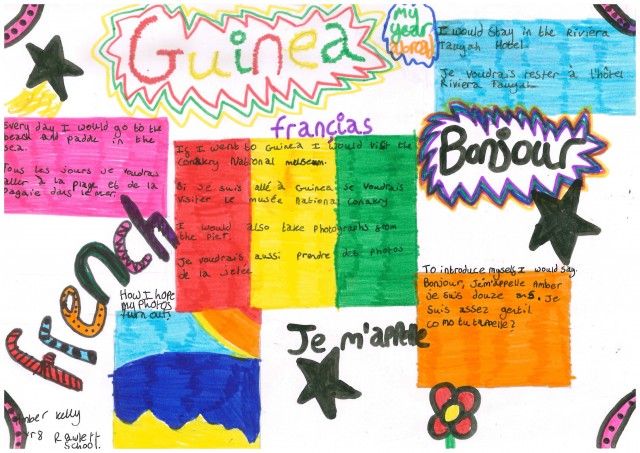 Guinea
my
year
abroad
I would stay in the Riviera
Taouyah Hotel.
Je voudrais rester à l'hôtel
Riviera Taouyah
français
Every day I would go to the
beach and padal in the
sea.
Tous les jours Je voudrais
aller à la plage et de la
Pagaie dans le mer.
If I went to Guinea I would visit the
Conakry National museum.
Si Je suis allé à Guinea Je voudrais
visiter le musée National Conakry
I would also take Photographs from
the Pier.
Je voudrais aussi prendre des Photos
de la Jetée
Bonjour
French
How I hope
my Photos
turn out!
Je m'appelle
To introduce myself I would say.
Bonjour, Je m'appelle Amber
Je suis douze ans. Je
Suis assez gentil
co mo tu t'appelle?
Amber Kelly
Yr8 Rawlett
School.